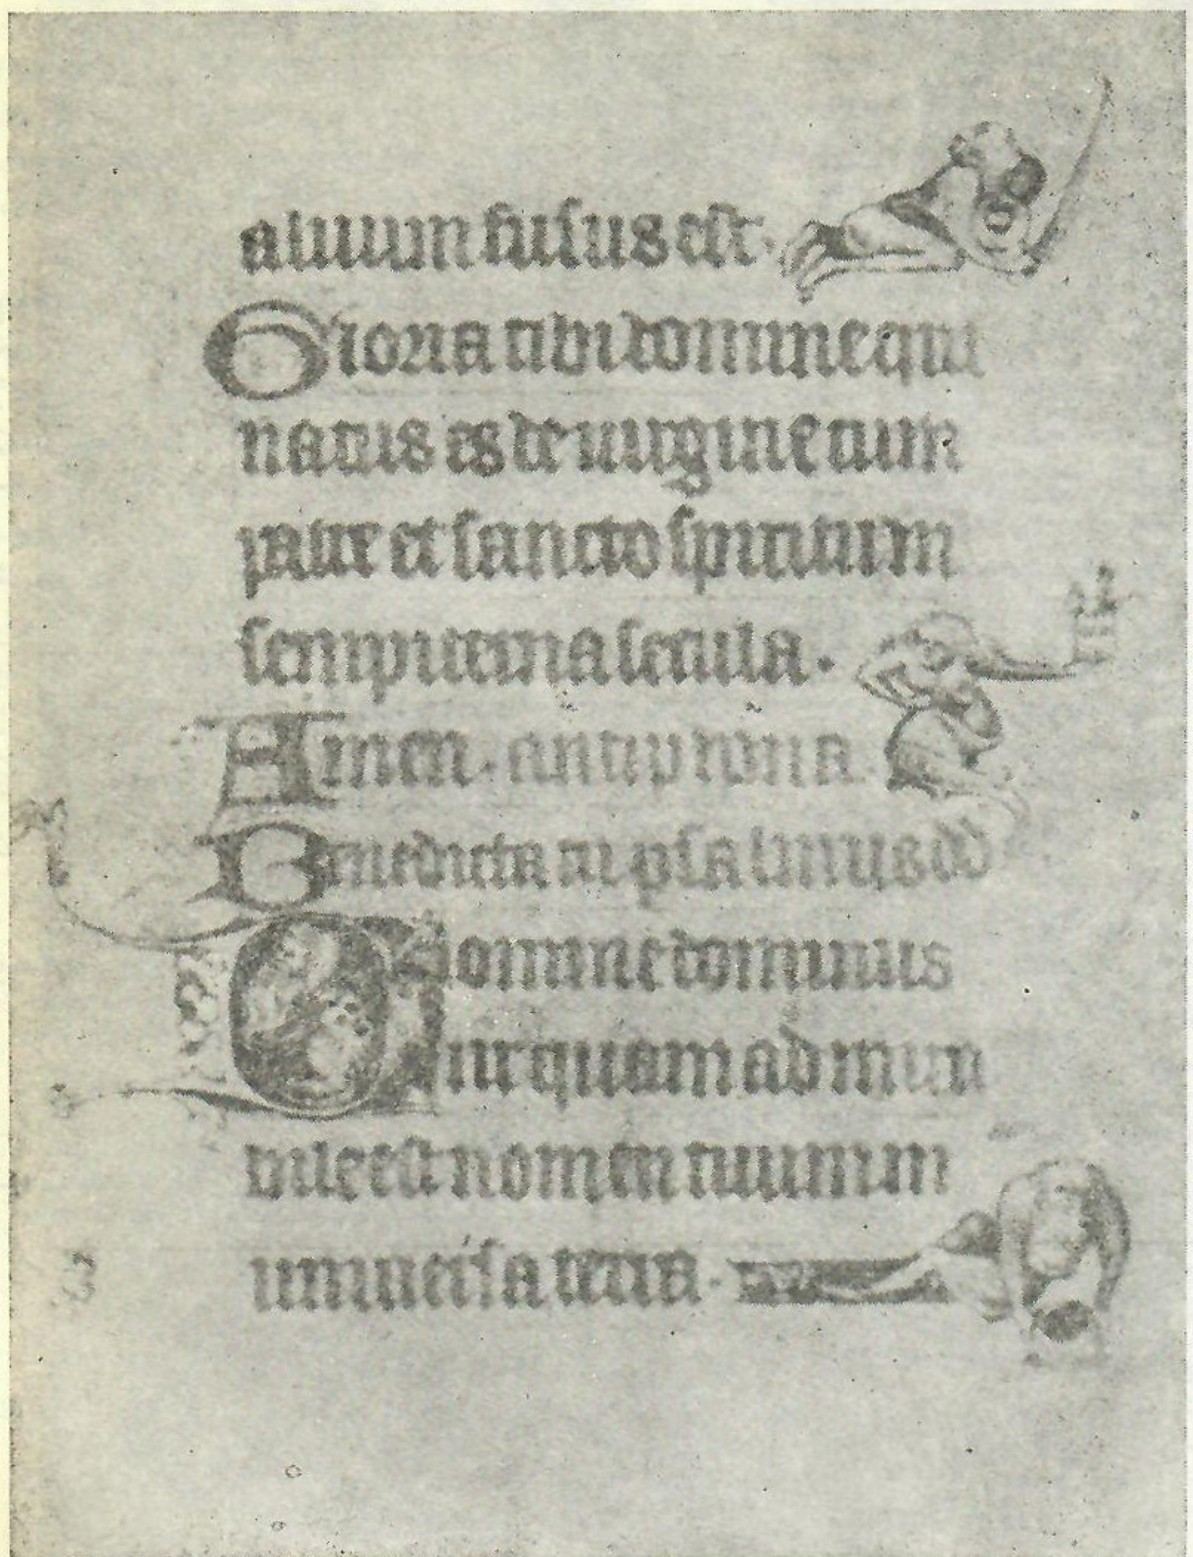 aluum fusus est.
Gloria tibi domine qui
natus es de uirgine cum
patre et sancto spiritu in
sempiterna secula.
Amen. antiphona
Benedicta tu psalmus dd
Domine dominus
noster quam admira
bile est nomen tuum in
uniuersa terra.